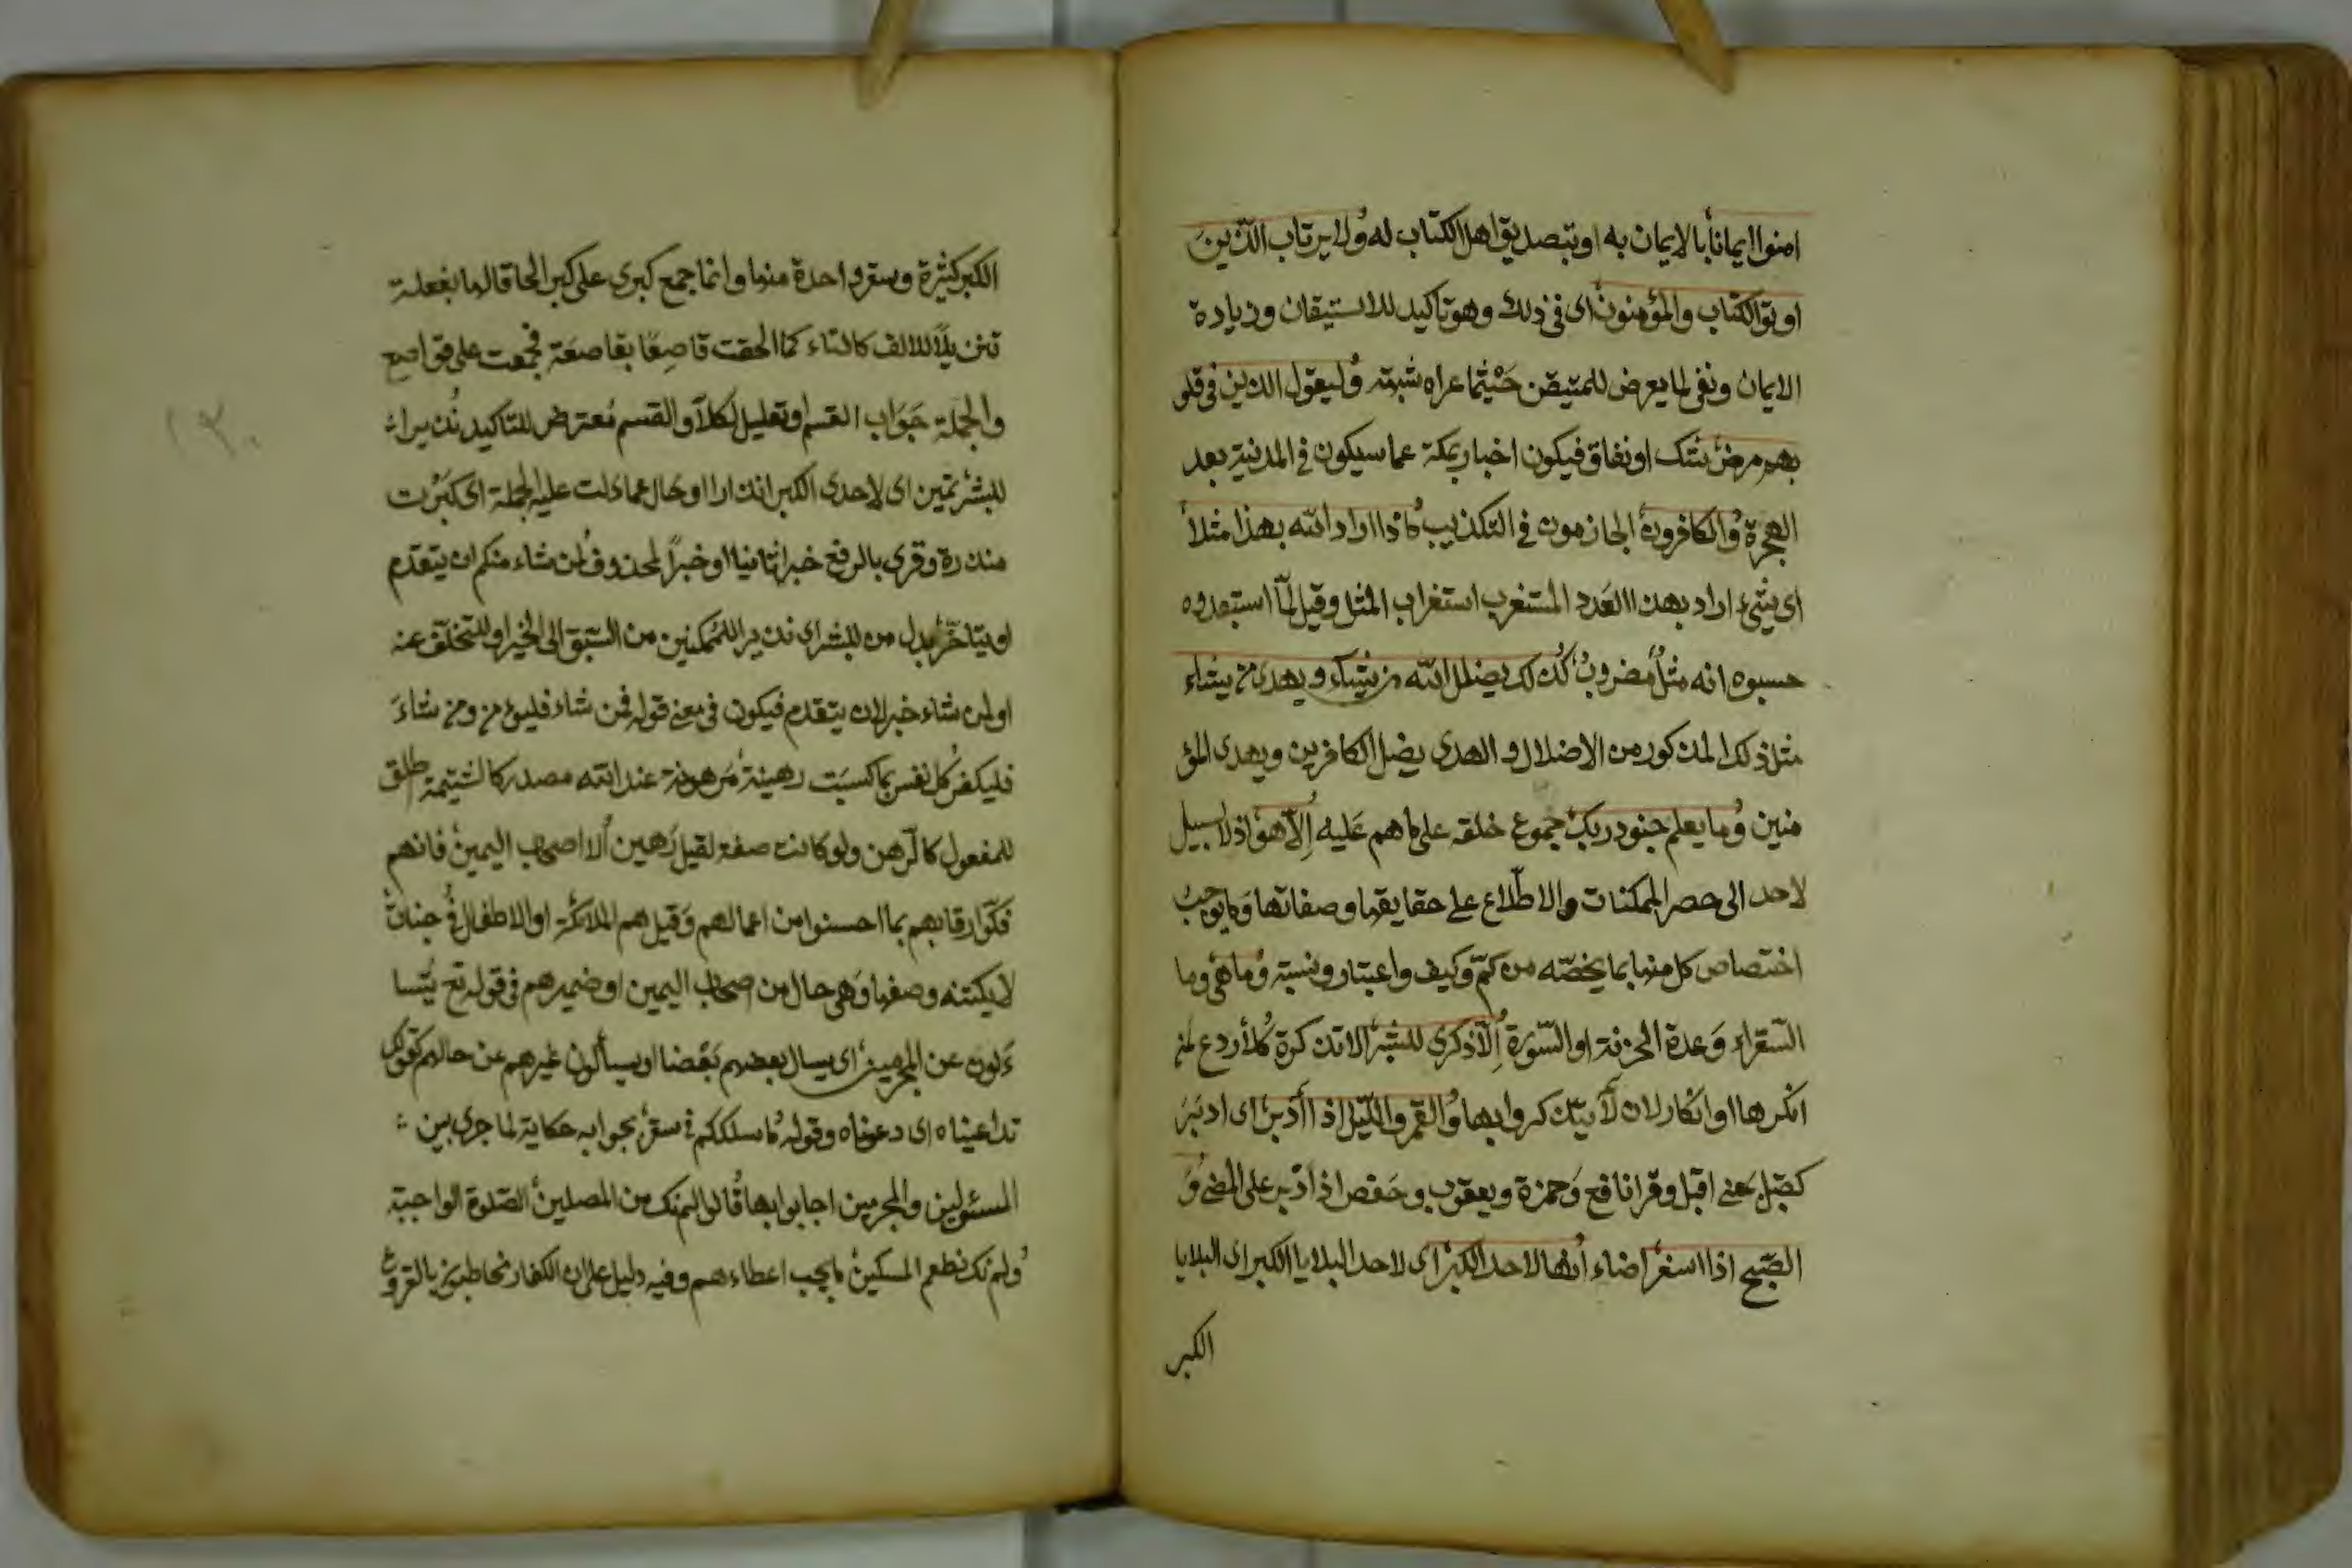 امنوا ايمانا بالايمان به او بتصديق اهل الكتاب له ولا يرتاب الذين
اوتوا الكتاب والمؤمنون اى فى ذلك وهو تاكيد للاستيقان وزيادة
الايمان ونفى لما يعرض للمتيقن حيثما عراه شبهة وليقول الذين فى قلو
بهم مرض شك او نفاق فيكون اخبار بمكة عما سيكون فى المدينة بعد
الهجرة والكافرون الجازمون فى التكذيب ماذا اراد الله بهذا مثلا
اى شئ اراد بهذا العدد المستغرب استغراب المثل وقيل لما استبعدوه
حسبوه انه مثل مضروب كذلك يضلل الله من يشاء ويهدى من يشاء
مثل ذلك المذكور من الاضلال والهدى يضل الكافرين ويهدى المؤ
منين وما يعلم جنود ربك جموع خلقه على ما هم عليه الا هو اذ لا سبيل
لاحد الى حصر الممكنات والاطلاع على حقايقها وصفاتها وما يوجب
اختصاص كل منها بما يخصه من كم وكيف واعتبار ونسبة وما هى وما
السقر او عدة الخزنة او السورة الا ذكرى للبشر الا تذكرة كلا ردع لمن
انكرها او انكار لان لا يتذكروا بها والقمر والليل اذا ادبر اى ادبر
كقبل بمعنى اقبل وقرا نافع وحمزة ويعقوب وحفص اذ ادبر على المضى و
الصبح اذا اسفر اضاء انها لاحد الكبر اى لاحد البلايا الكبر اى البلايا
الكبر
الكبر كثيرة وسقر واحدة منها وانما جمع كبرى على كبر الحاقا لها بفعلة
تنزيلا للالف كالتاء كما الحقت قاصعا بقاصعة فجمعت على قواصع
والجملة جواب القسم او تعليل لكلا والقسم معترض للتاكيد نذيرا
للبشر تمييز اى لاحدى الكبر انذارا او حال عما دلت عليه الجملة اى كبرت
منذرة وقرى بالرفع خبرا ثانيا او خبرا لمحذوف لمن شاء منكم ان يتقدم
او يتاخر بدل من للبشر اى نذيرا للممكنين من السبق الى الخير او للتخلف عنه
او لمن شاء خبر لان يتقدم فيكون فى معنى قوله فمن شاء فليؤمن ومن شاء
فليكفر كل نفس بما كسبت رهينة مرهونة عند الله مصدر كالشتيمة طلق
للمفعول كالرهن ولو كانت صفة لقيل رهين الا اصحاب اليمين فانهم
فكوا رقابهم بما احسنوا من اعمالهم وقيل هم الملائكة او الاطفال فى جنات
لا يكتنه وصفها وهى حال من اصحاب اليمين او ضميرهم فى قوله تع يتسا
ءلون عن المجرمين اى يسال بعضهم بعضا او يسألون غيرهم عن حالهم كقولك
تداعيناه اى دعوناه وقوله ما سلككم فى سقر بجوابه حكاية لما جرى بين
المسئولين والمجرمين اجابوا بها قالوا لم نك من المصلين الصلوة الواجبة
ولم نك نطعم المسكين ما يجب اعطاءهم وفيه دليل على ان الكفار مخاطبون بالفروع